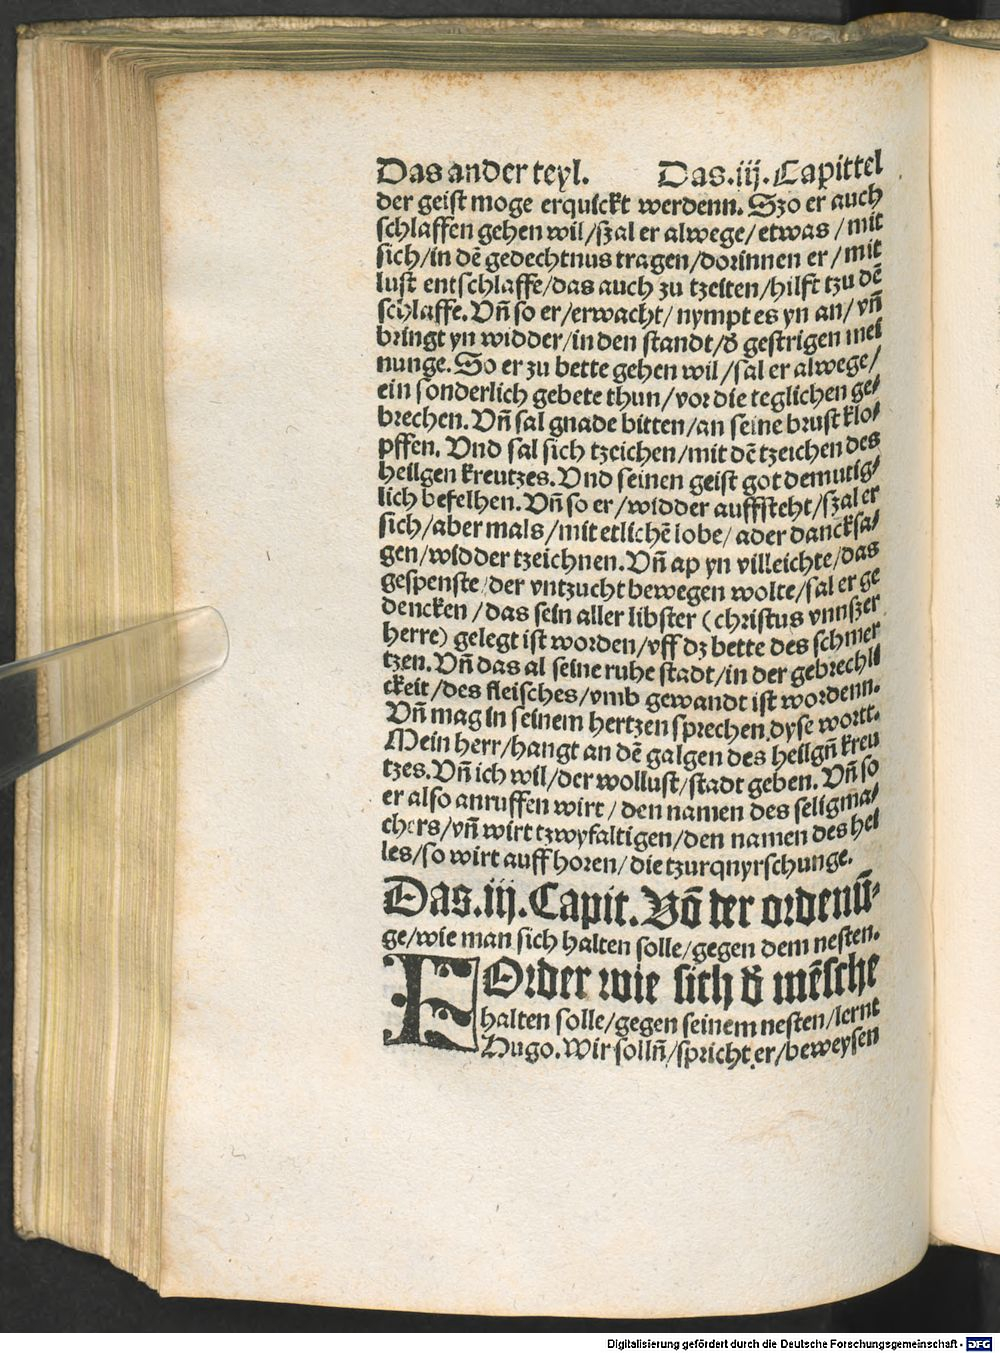 Das ander teyl. Das.iij.Capittel
der geist moge erquickt werdenn. Szo er auch
schlaffen gehen wil/szal er alwege/etwas/mit
sich/in dē gedechtnus tragen/dorinnen er/mit
lust entschlaffe/das auch zu tzeiten/hilft tzu dē
schlaffe. Vn̄ so er/erwacht/nympt es yn an/vn̄
bringt yn widder/in den standt/d̕ gestrigen mei
nunge. So er zu bette gehen wil/sal er alwege/
ein sonderlich gebete thun/vor die teglichen ge⸗
brechen. Vn̄ sal gnade bitten/an seine brust klo⸗
pffen. Vnd sal sich tzeichen/mit dē tzeichen des
heilgen kreutzes. Vnd seinen geist got demutig⸗
lich befelhen. Vn̄ so er/widder auffsteht/szal er
sich/aber mals/mit etlichē lobe/ader dancksa⸗
gen/widder tzeichnen. Vn̄ ap yn villeichte/das
gespenste/der vntzucht bewegen wolte/sal er ge
dencken/das sein aller libster (christus vnnszer
herre) gelegt ist worden/vff dz bette des schmer
tzen. Vn̄ das al seine ruhe stadt/in der gebrechli
ckeit/des fleisches/vmb gewandt ist wordenn.
Vn̄ mag in seinem hertzen sprechen dyse wortt.
Mein herr/hangt an dē galgen des heilgn̄ kreu
tzes. Vn̄ ich wil/der wollust/stadt geben. Vn̄ so
er also anruffen wirt/den namen des seligma⸗
chers/vn̄ wirt tzwyfaltigen/den namen des hei
les/so wirt auff horen/die tzurqnyrschunge.
Das.iij.Capit. Vō der ordenū⸗
ge/wie man sich halten solle/gegen dem nesten.
FOrder wie sich d̕ mēsche
halten solle/gegen seinem nesten/lernt
Hugo. Wir solln̄/spricht er/beweysen
Digitalisierung gefördert durch die Deutsche Forschungsgemeinschaft - DFG